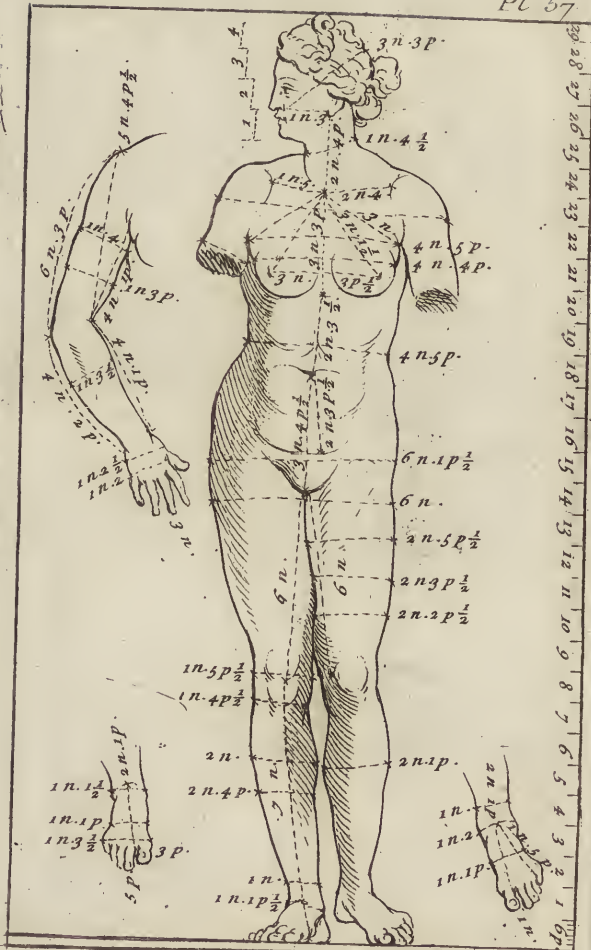 Pl 57
1 2 3 4
3 n.3p.
1n.3
2 n.4p.
1 n.4 ½
5 n.4p ½
1n.5
2 n.4
6 n 3 p.
1n.4
4 n 5p.
4 n.4p.
3 n 3 p.
3 n.
3p ½
1n3p.
2 n 3 ½
4 n 5p.
1n3 ½
2 n 3p ½
3 n.4p ½
1n.2 ½
1n.2
3 n.
6 n.1p ½
6 n.
2 n.5p ½
2 n3p ½
2n.2p ½
6 n.
6 n.
1n.5p ½
1n.4p ½
2 n.
2 n.1p.
2 n.4p.
6 n.
1 n.
1 n.1p ½
2n.1p.
1 n.1 ½
1n.1p
1n.3 ½
3p.
5p
2 n 1p
1 n
1n.2
1n.1p
1n
29 28 27 26 25 24 23 22 21 20 19 18 17 16 15 14 13 12 11 10 9 8 7 6 5 4 3 2 1 6p